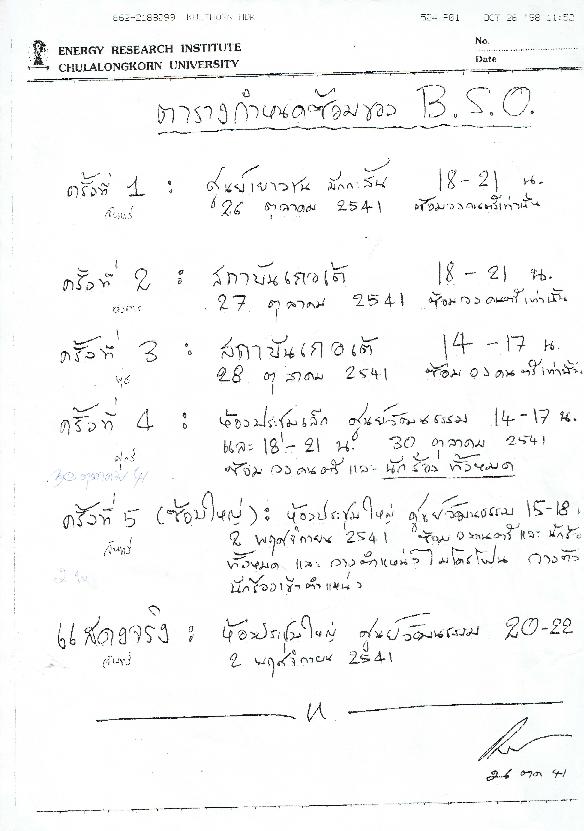 OCT 26 '98 11:53
ENERGY RESEARCH INSTITUTE
CHULALONGKORN UNIVERSITY
No.
Date
ตารางกำหนดซ้อมของ B.S.O.
ครั้งที่ 1 : ศูนย์เยาวชน มักกะสัน 18-21 น.
จันทร์ 26 ตุลาคม 2541 ซ้อมวงดนตรีเท่านั้น
ครั้งที่ 2 : สถาบันเกอเต้ 18-21 น.
อังคาร 27 ตุลาคม 2541 ซ้อมวงดนตรีเท่านั้น
ครั้งที่ 3 : สถาบันเกอเต้ 14-17 น.
พุธ 28 ตุลาคม 2541 ซ้อมวงดนตรีเท่านั้น
ครั้งที่ 4 : ห้องประชุมเล็ก ศูนย์วัฒนธรรม 14-17 น.
ศุกร์ และ 18-21 น. 30 ตุลาคม 2541
ซ้อมวงดนตรี และ นักร้องทั้งหมด
ครั้งที่ 5 (ซ้อมใหญ่) : ห้องประชุมใหญ่ ศูนย์วัฒนธรรม 15-18
จันทร์ 2 พฤศจิกายน 2541 ซ้อมวงดนตรี และ นักร้อง
ทั้งหมด และ วางตำแหน่งไมโครโฟน วางตัว
นักร้องเข้าตำแหน่ง
แสดงจริง : ห้องประชุมใหญ่ ศูนย์วัฒนธรรม 20-22
จันทร์ 2 พฤศจิกายน 2541
26 ตค 41